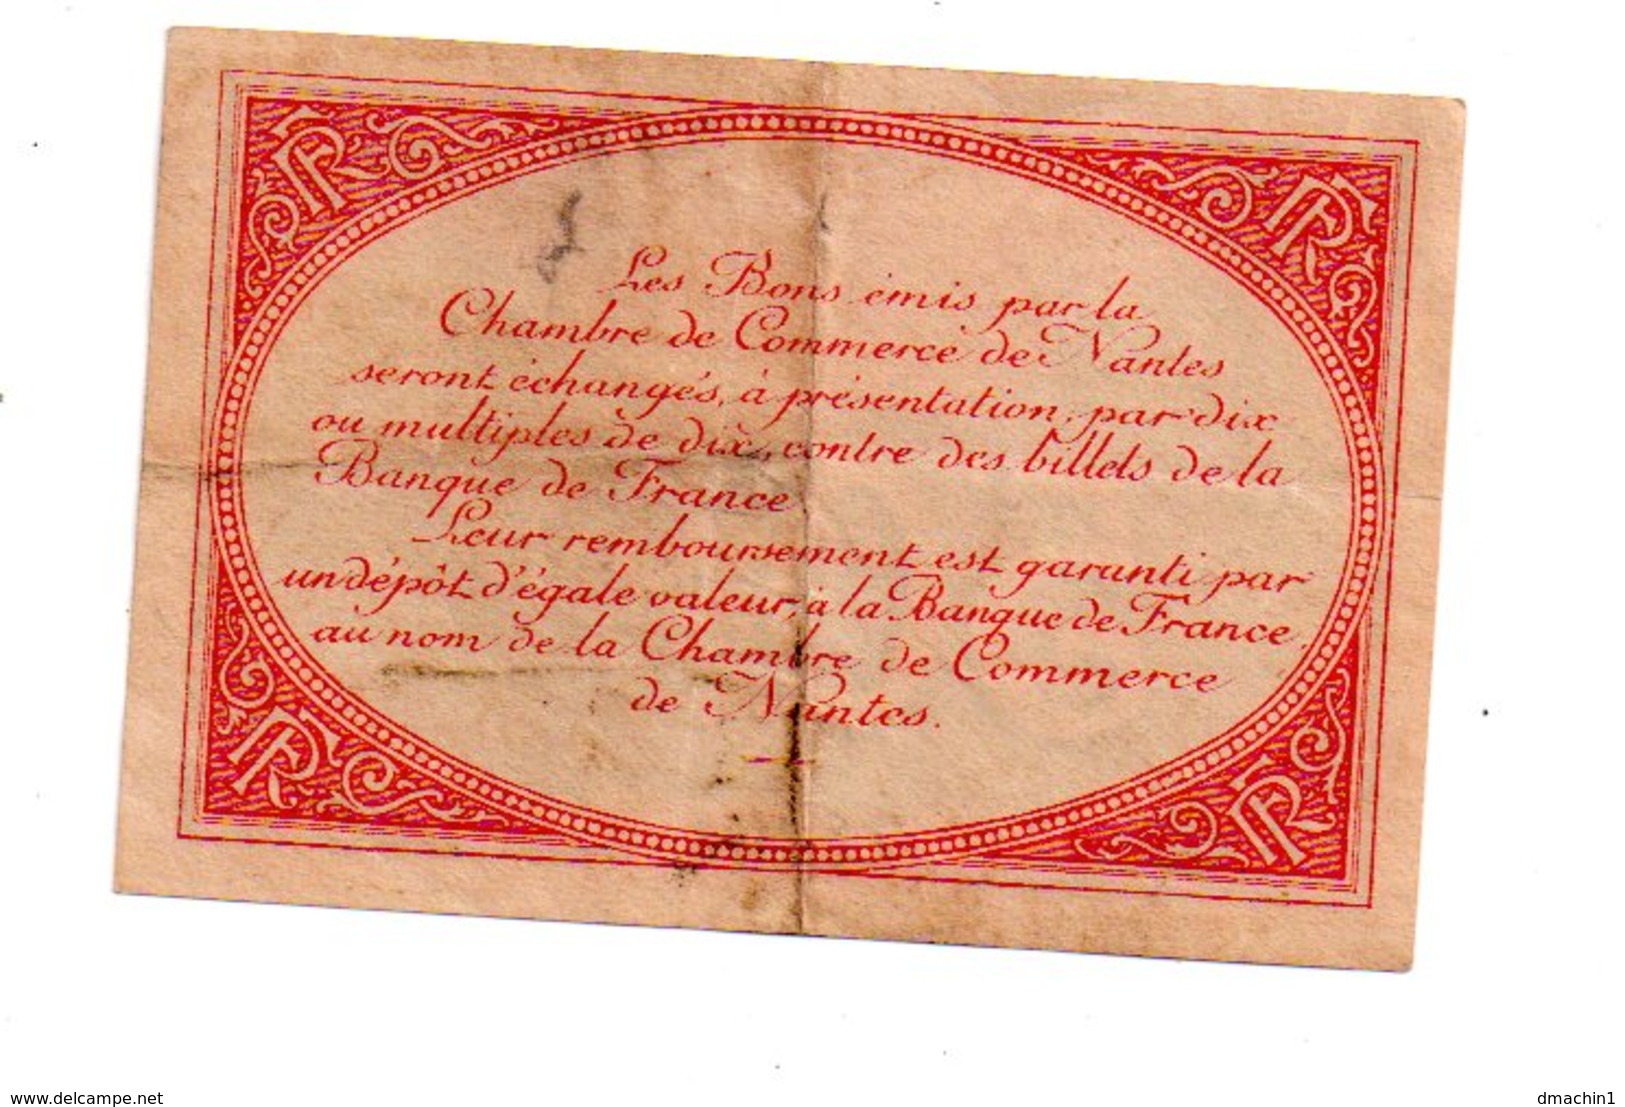 Les Bons émis par la
Chambre de Commerce de Nantes
seront échangés, à présentation, par dix
ou multiples de dix, contre des billets de la
Banque de France
Leur remboursement est garanti par
un dépôt d'égale valeur, à la Banque de France,
au nom de la Chambre de Commerce
de Nantes.
www.delcampe.net
dmachin1